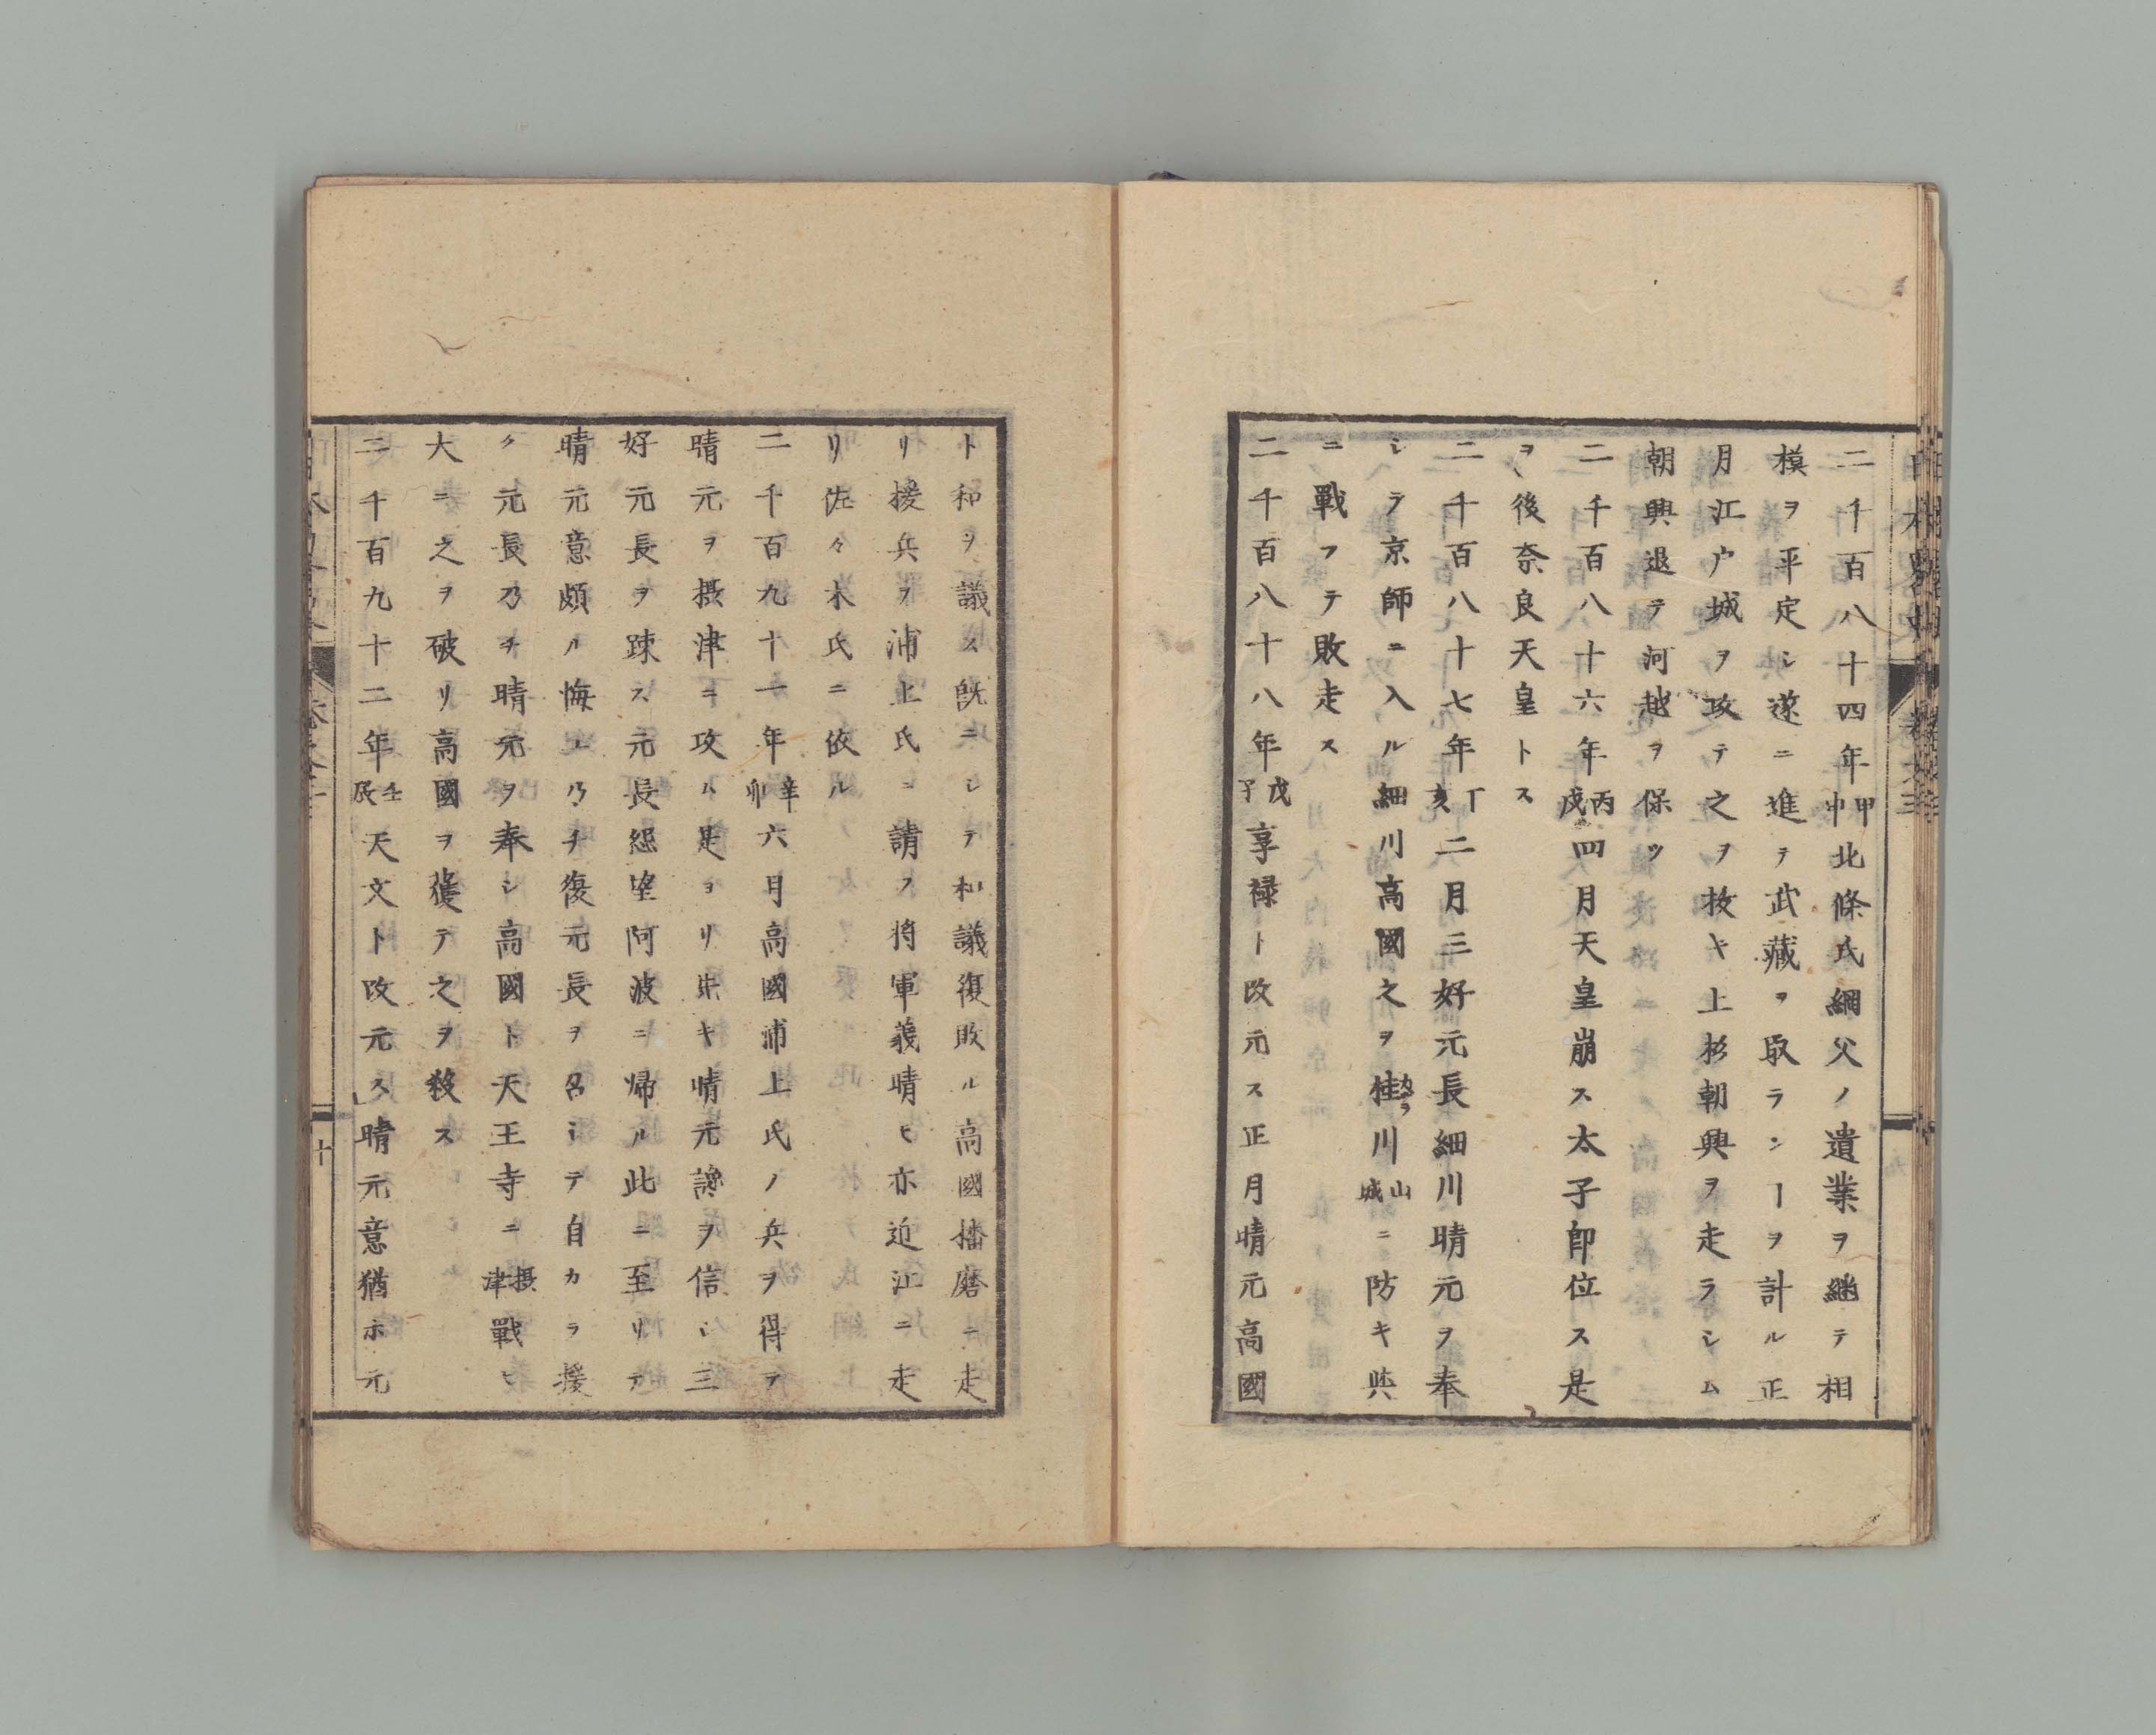 二千百八十四年甲申北條氏綱父ノ遺業ヲ継テ相
模ヲ平定シ遂ニ進テ武藏ヲ取ラン𪜈ヲ計ル正
月江戸城ヲ攻テ之ヲ抜キ上杉朝興ヲ走ラシム
朝興退テ河越ヲ保ツ
二千百八十六年丙戌四月天皇崩ス太子即位ス是
ヲ後奈良天皇トス
二千百八十七年丁亥二月三好元長細川晴元ヲ奉
シテ京師ニ入ル細川高國之ヲ桂川山城ニ防キ與
ニ戰フテ敗走ス
二千百八十八年戊子享禄ト改元ス正月晴元高國
ト和ヲ議ス既ニシテ和議復敗ル高國播磨ニ走
リ援兵ヲ浦上氏ニ請フ將軍義晴モ亦近江ニ走
リ佐々木氏ニ依ル
二千百九十一年辛卯六月高國浦上氏ノ兵ヲ得テ
晴元ヲ摂津ニ攻ム是ヨリ先キ晴元讒ヲ信シ三
好元長ヲ疎ス元長怨望阿波ニ帰ル此ニ至リテ
晴元意頗ル悔ユ乃チ復元長ヲ召シテ自カラ援
ク元長乃チ晴元ヲ奉シ高國ト天王寺ニ摂津戰ヒ
大ニ之ヲ破リ高國ヲ獲テ之ヲ殺ス
二千百九十二年壬辰天文ト改元ス晴元意猶ホ元
十